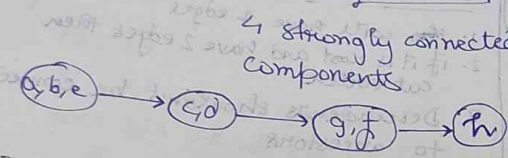 4 strongly connected
components
a,b,e
c,d
g,f
h